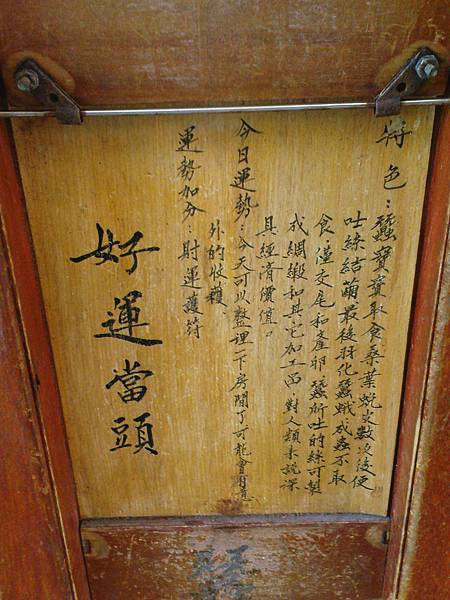 特色：蠶寶寶取食桑葉蛻皮數次後便
吐絲結繭最後羽化蠶蛾成蟲不取
食，僅交尾和產卵 蠶所吐的絲可製
成綢緞和其它加工品 對人類來說深
具經濟價值。
今日運勢：今天可以整理一下房間了可能會有意
外的收穫
運勢加分：財運護符
好運當頭